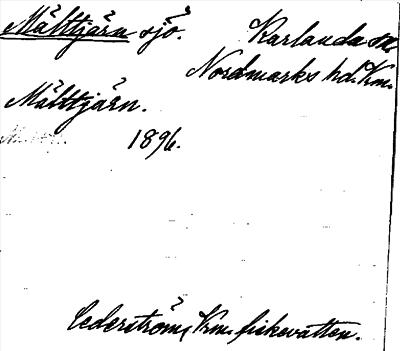 Målttjärn sjö. Karlanda sn
Nordmarks hd. Krm.
Målttjärn.
1896.
Cederström, Krm. fiskevatten.